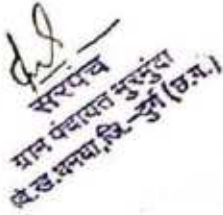 सरपंच
ग्राम पंचायत मुरमुंदा
वि.ख.धमधा,जि.-दुर्ग (छ.ग.)